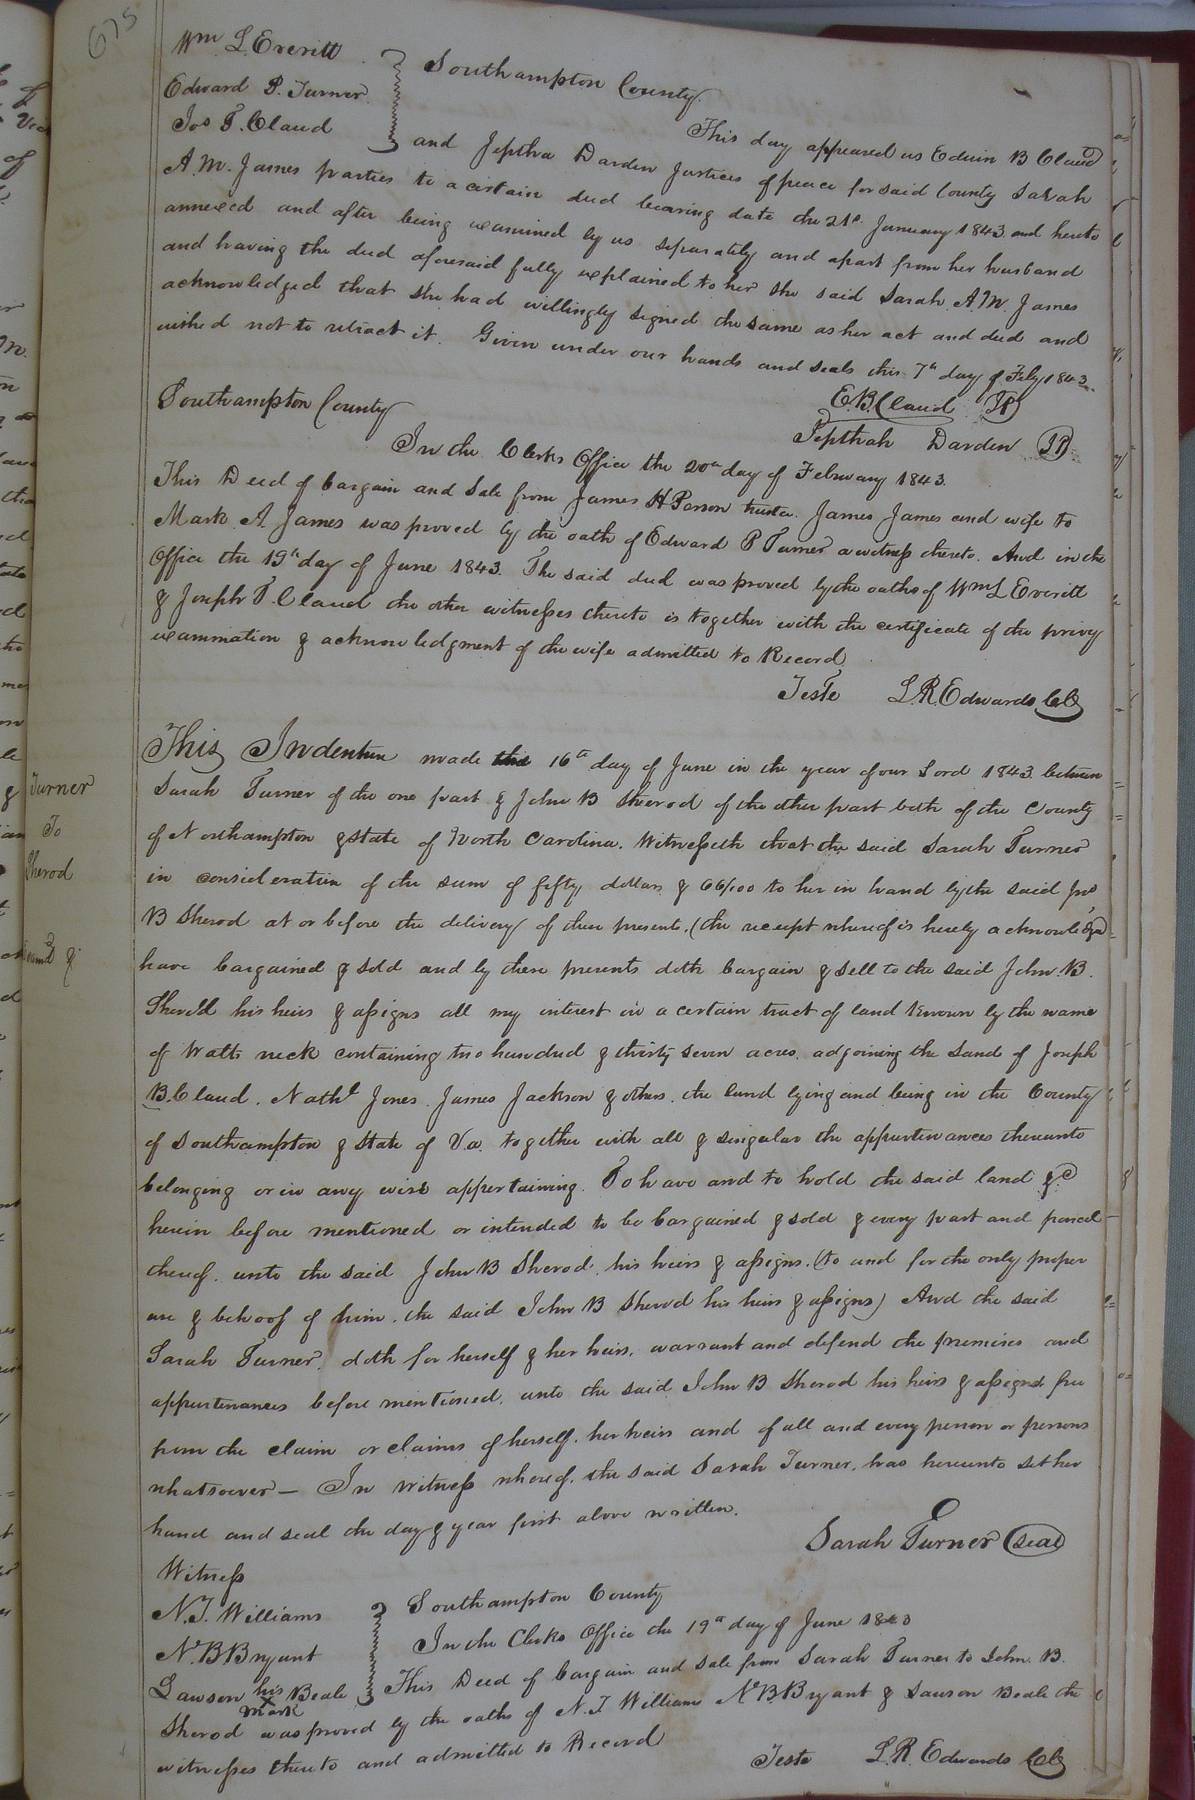 675
Wm L. Everitt
Edward P. Turner
Jos T. Claud
Southampton County
This day appeared us Edwin B Claud
and Jeptha Darden Justices of peace for said County Sarah
A. M. James parties to a certain deed bearing date the 21st January 1843 and hereto
annexed and after being examined by us seperately and apart from her husband
and having the deed aforesaid fully explained to her she said Sarah A. M. James
acknowledged that she had willingly signed the same as her act and deed and
wished not to retract it. Given under our hands and seals this 7th day of Feby 1843
E. B. Claud JP
Jepthah Darden JP
Southampton County
In the Clerks Office the 20th day of February 1843
This Deed of bargain and Sale from James H Person trustee. James James and wife to
Mark A. James was proved by the oath of Edward P Turner a witness thereto. And in the
Office the 19th day of June 1843. The said deed was proved by the oaths of Wm L Everitt
& Joseph T. Claud the other witnesses thereto is together with the certificate of the privy
examination & acknowledgment of the wife admitted to Record
Teste L. R. Edwards Clk
This Indenture made this 16th day of June in the year of our Lord 1843 between
Sarah Turner of the one part & John B Sherod of the other part both of the County
of Northampton & State of North Carolina. Witnesseth that the said Sarah Turner
in consideration of the sum of fifty dollars & 66/100 to her in hand by the said Jno
B Sherod at or before the delivery of these presents, (the receipt whereof is hereby acknowledged
have bargained & sold and by these presents doth bargain & sell to the said John. B.
Sherod his heirs & assigns all my interest in a certain tract of land known by the name
of Watts neck containing two hundred & thirty seven acres. adjoining the land of Joseph
B. Claud. Nathl Jones. James Jackson & others. the land lying and being in the County
of Southampton & State of Va. together with all & singular the appurtenances thereunto
belonging or in any wise appertaining. To have and to hold the said land &c
herein before mentioned or intended to be bargained & sold & every part and parcel
thereof. unto the said John B Sherod. his heirs & assigns. (to and for the only proper
use & behoof of him. the said John B Sherod his heirs & assigns) And the said
Sarah Turner. doth for herself & her heirs. warrant and defend the premises and
appurtenances before mentioned. unto the said John B Sherod his heirs & assigns free
from the claim or claims of herself. her heirs and of all and every person or persons
whatsoever — In witness whereof. the said Sarah Turner. has hereunto set her
hand and seal the day & year first above written.
Sarah Turner Seal
Turner
To
Sherod
Witness
N. T. Williams
N. B Bryant
Lawson his X mark Beale
Southampton County
In the Clerks Office the 19th day of June 1843
This Deed of bargain and sale from Sarah Turner to John. B.
Sherod was proved by the oaths of N. T Williams N. B. Bryant & Lawson Beale the
witnesses thereto and admitted to Record
Teste L. R. Edwards Clk